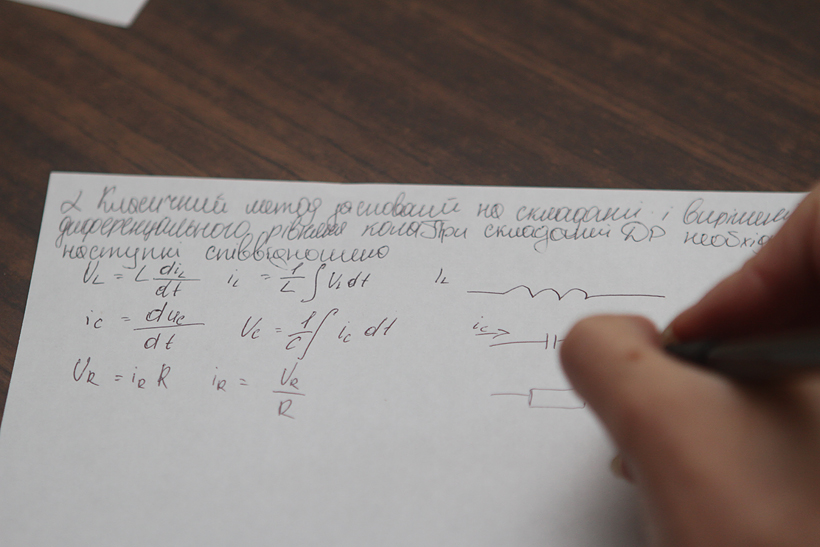 2 Класичний метод заснований на складанні і вирішен
диференціального рівняння кола. При складанні ДР необхід
наступні співвідношено
U_L = L di_L/dt   i_L = 1/L ∫ U_L dt   i_L
i_C = du_C/dt   U_C = 1/C ∫ i_C dt   i_C
U_R = i_R R   i_R = U_R/R